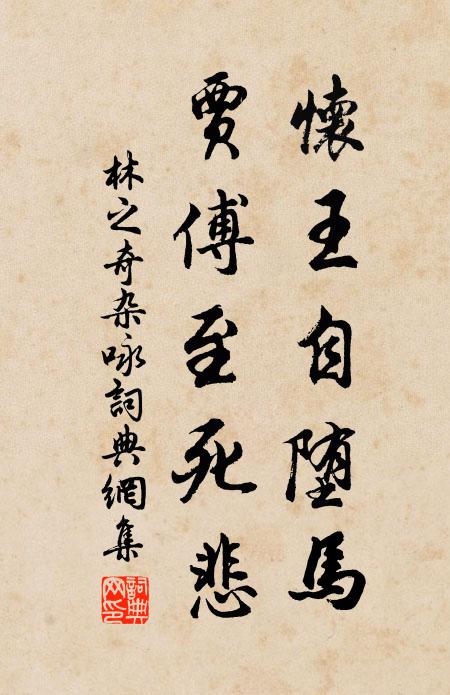 懷王自堕馬
賈傅至死悲
林之奇杂咏詞典網集